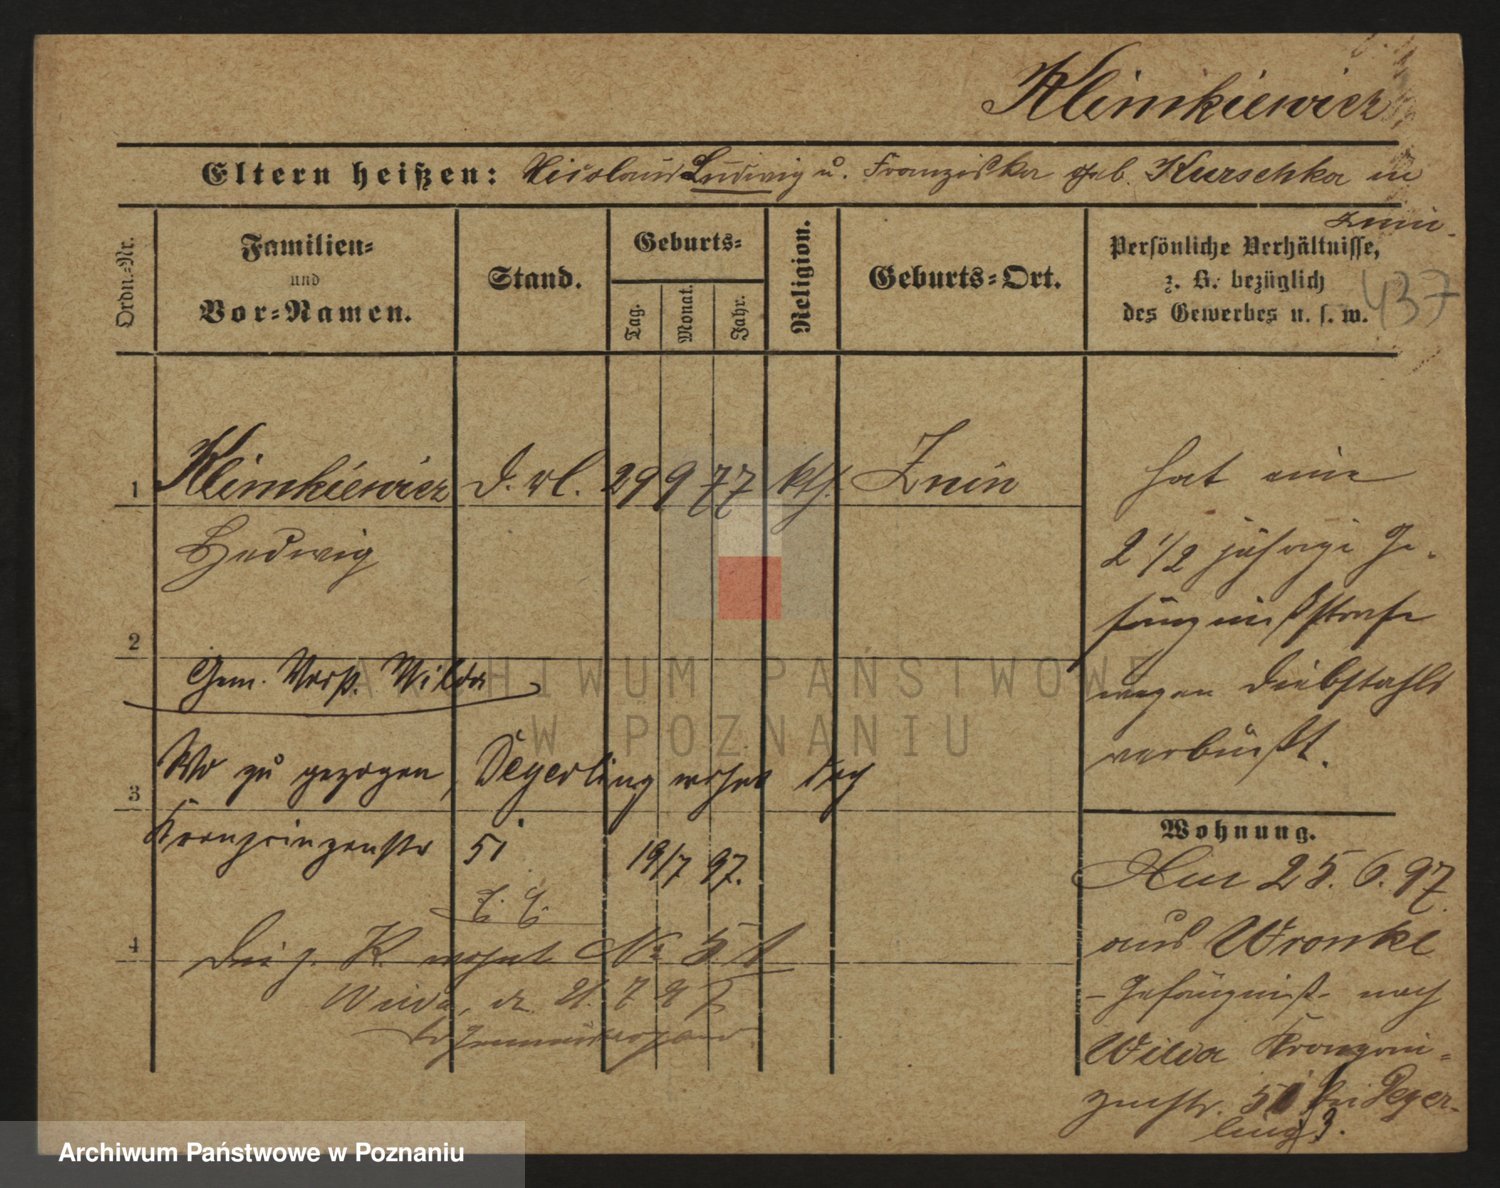 Klimkiewicz
Eltern heißen: Nicolaus Ludwig u. Franziska geb. Kurschka in
Znin.
Ordn.-Nr.
Familien-
und
Vor-Namen.
Stand.
Geburts-
Tag.
Monat.
Jahr.
Religion.
Geburts-Ort.
Persönliche Verhältnisse,
z. B. bezüglich
des Gewerbes u. s. w.
437
1 Klimkiewicz d. vl. 29 9 77 kth. Znin
Hedwig
hat eine
2 1/2 jährige Ge-
fängnißstrafe
wegen Diebstahls
verbüßt.
2
Gem. Vorst. Wilda
Wo zu gezogen, Degerling wohnt doch
3
Kronprinzenstr 51 19/7 97.
4
K. wohnt No 51
Wilda, d. 21. 7 97
Wohnung.
Am 25. 6. 97
aus Wronke
- Gefängniß - nach
Wilda Kronprin-
zenstr. 51 bei Deger-
ling
ARCHIWUM PAŃSTWOWE
W POZNANIU
Archiwum Państwowe w Poznaniu